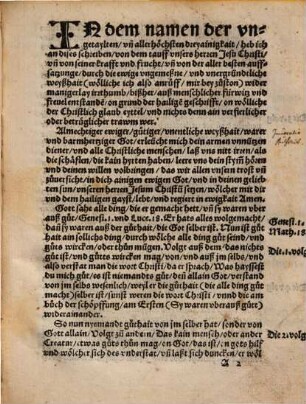 IN dem namen der vn-
getaylten, vñ allerhöchsten dreyainigkait, heb ich
an dises schreiben, von dem tauff vnsers herren Jesu Christi,
vñ von seiner krafft vnd frucht, vñ von der aller besten auff-
satzunge, durch die ewige vngemeßne, vnd vnergründtliche
weyßhait (wölliche ich also anrüff, mir bey zůston) wider
maniger lay irrthumb, beßher, auß menschlicher fürwitz vnd
freuel entstandē, on grund der hailigē geschrifft, on wölliche
der Christlich glaub eyttel, vnd nichts denn ain verfierlicher
oder betrüglicher trawm wer.
Almechtiger ewiger, gütiger, vnentliche weyßhait, warer
vnd barmhertziger Got, erleücht mich dein armen vnnützen
diener, vnd alle Christliche menschen, laß vns nit irren, als
die schäfflen, die kain hyrten haben, leere vns dein styfft hören
vnd deinen willen volbringen, das wir allen vnsern trost vñ
zůuersicht, in dich ainigen ewigen Got, vnd in deinen gelieb-
ten sun, vnseren herren Jesum Christū setzen, wölcher mit dir
vnd dem hailigen gayst, lebt, vnd regiert in ewigkait Amen.
Got sahe alle ding, die er gemacht hett, vñ sy waren vber
auß gůt, Genes. 1. vnd Luce. 18. Er hats alles wolgemacht,
das sy waren auß der gůthait, die Got selber ist. Nun ist gůt
hait am sollich ding, durch wölche alle ding gůt seind, vnd
gůts wircken, oder thůn mügen. Volgt auß dem, das nichts
gůt ist, vnd gůts wircken mag, von, vnd auß im selbs, vnd
also verstat man die wort Christi, da er sprach, Was haysest
du mich gůt, es ist niemandts gůt, den allain Got, verstand
von im selbs wesenlich, weyl er die gůthait (die alle ding gůt
macht) selber ist, sunst weren die wort Christi, vnnd die am
bůch der schöpffung, am Ersten (Sy waren vberauß gůt)
widerainander.
So nun nyemandt gůthait von im selber hat, sonder von
Gott allain, Volgt zů andern, Das kain mensch, oder ander
Creatur, etwas gůts thůn mag, on Got, das ist, on gots hilff
vnd wölcher sich des vnderstat, vñ laßt sich duncken, er wöl
A 2
Genes. 1.
Math. 18
Die .1. volg
Die 2. volg